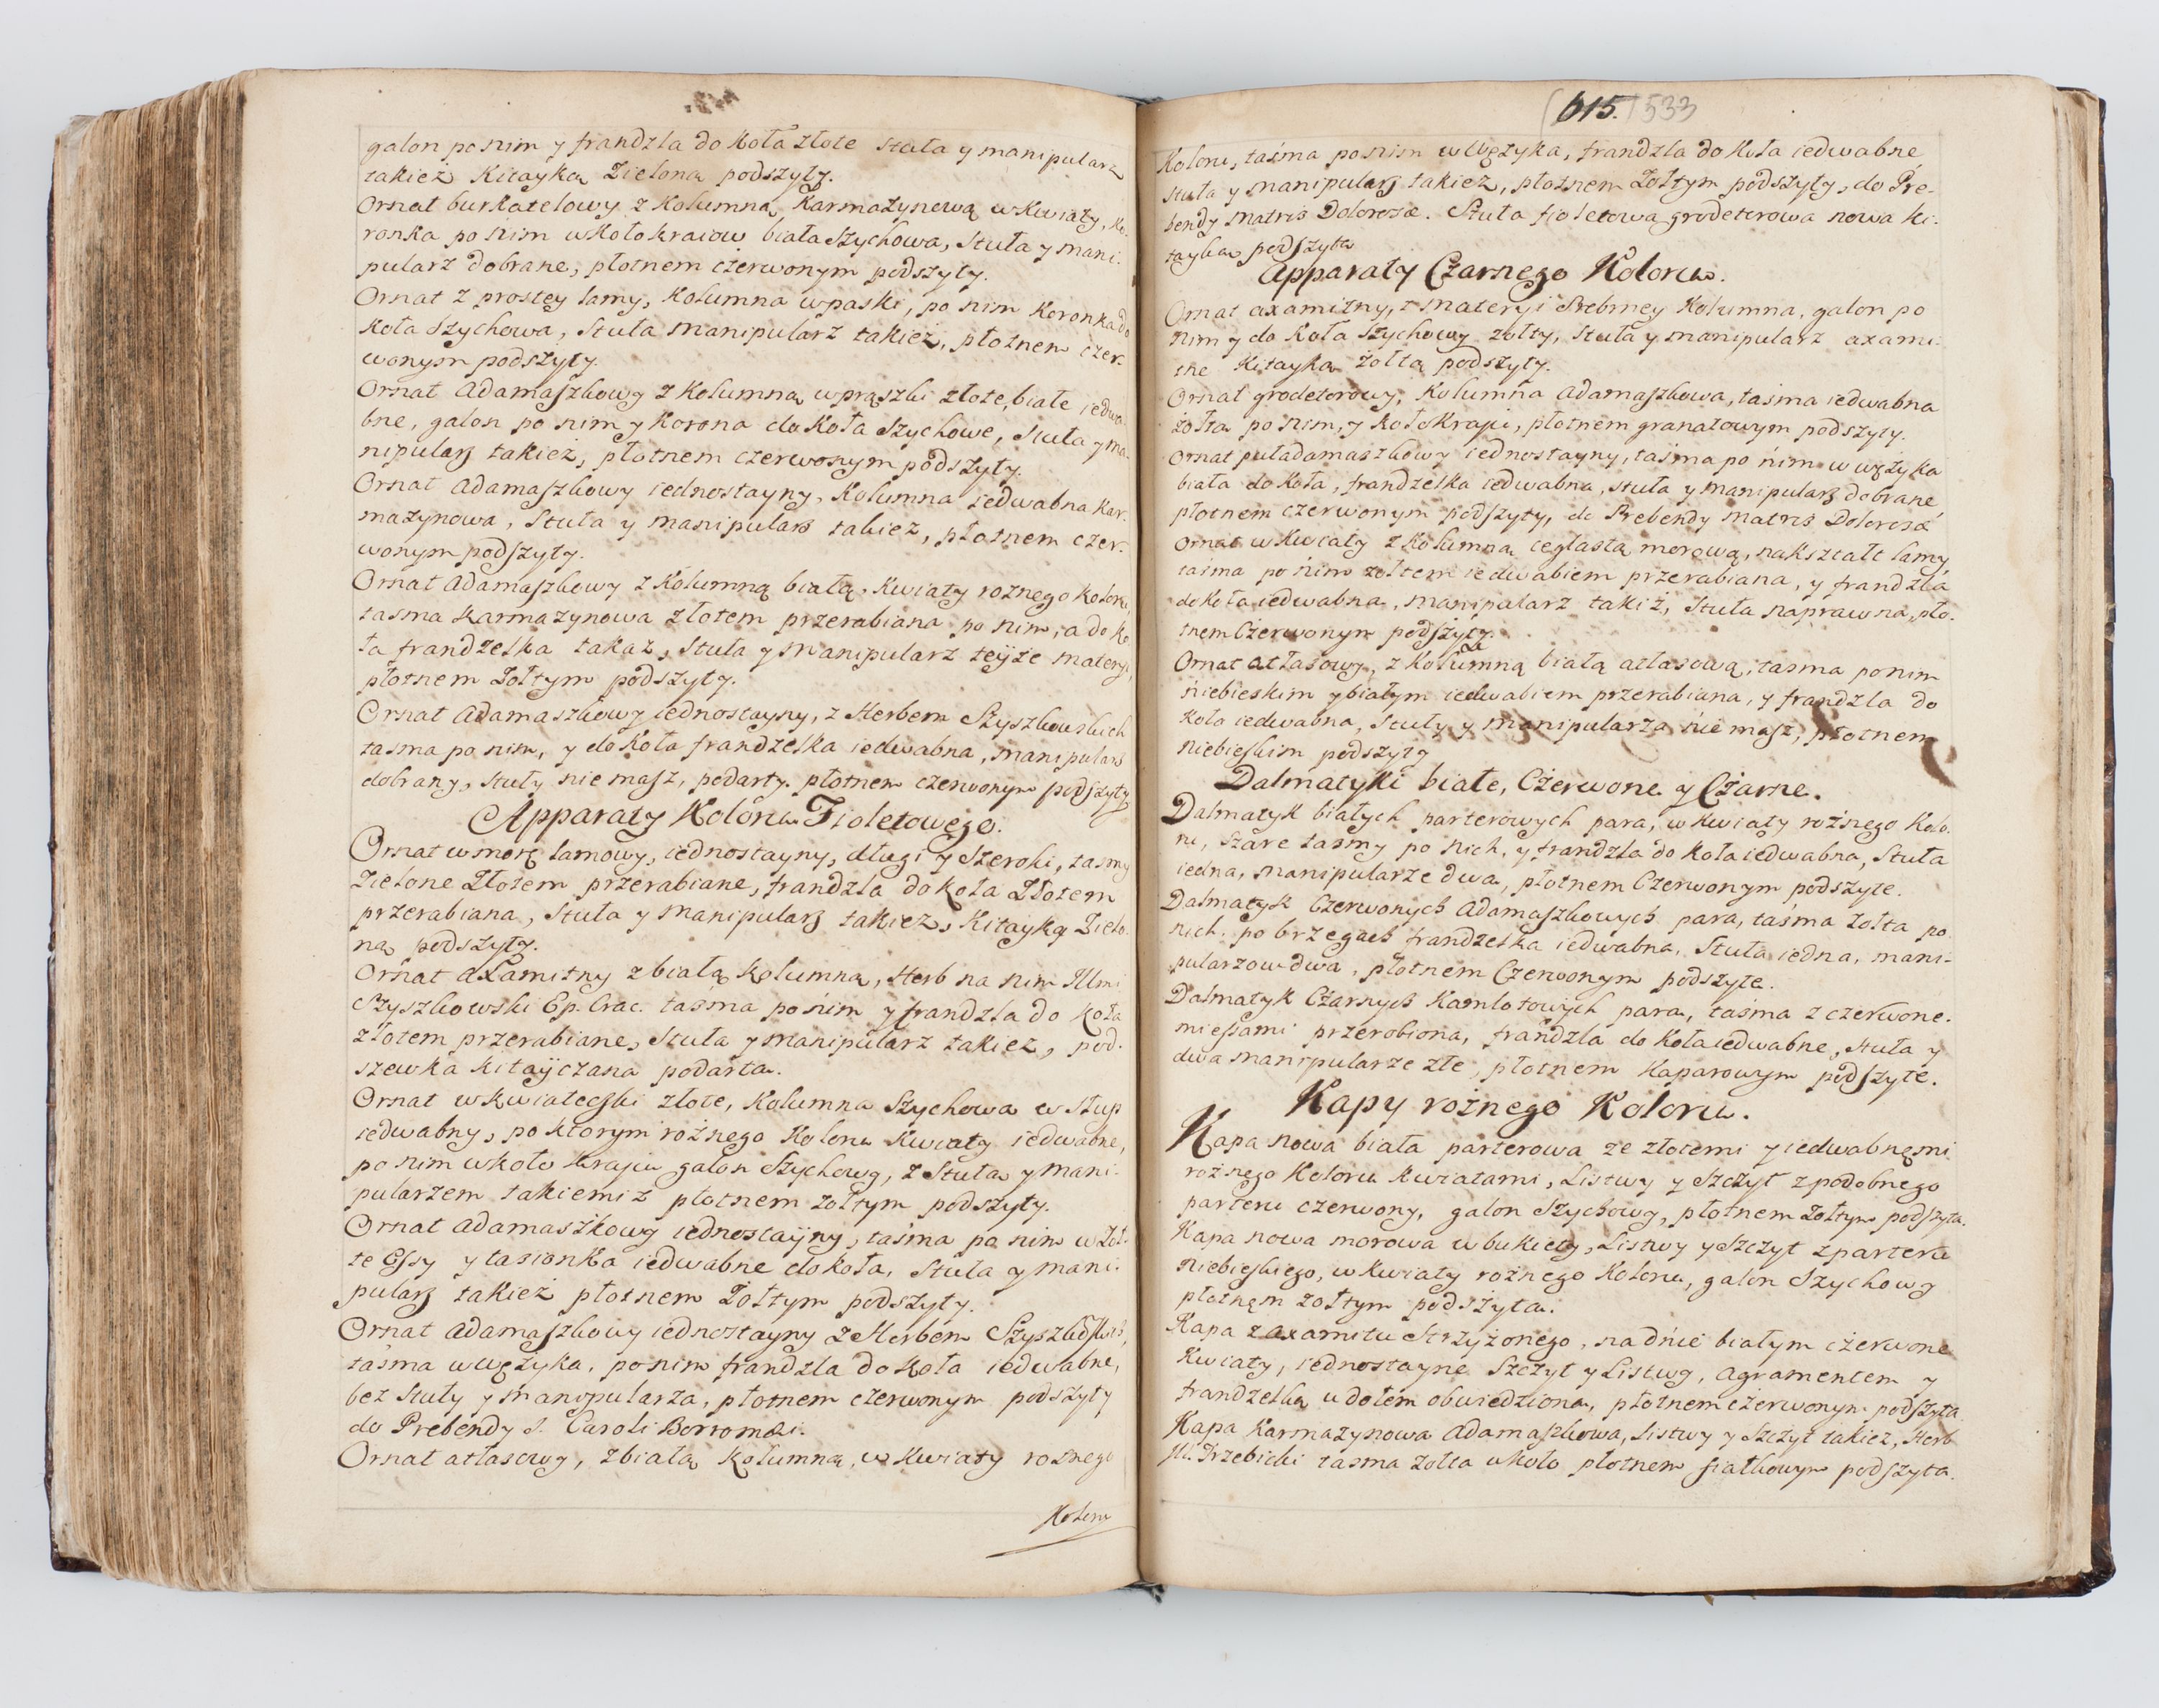 galon po nim y frandzla do koła złote Stuła y manipularz
takież Kitayką Zieloną podszyty.
Ornat burkatelowy z Kolumną Karmazynową w Kwiaty, Ko-
ronka po nim w koło kraiow biała Szychowa, Stuła y mani-
pularz dobrane, płotnem czerwonym podszyty.
Ornat z prostey lamy, Kolumna w paski, po nim Koronka do
Koła Szychowa, Stuła manipularz takież, płotnem czer-
wonym podszyty.
Ornat Adamaszkowy z Kolumną w prąszki złote, białe iedwa-
bne, galon po nim y Korona do Koła Szychowe, Stuła y ma-
nipularz takież, płotnem czerwonym podszyty.
Ornat Adamaszkowy iednostayny, Kolumna iedwabna Kar-
mazynowa, Stuła y manipularz takież, płotnem czer-
wonym podszyty.
Ornat Adamaszkowy z Kolumną białą, Kwiaty rożnego koloru,
tasma Karmazynowa złotem przerabiana po nim, a do ko-
ła frandzelka takaż, Stuła y manipularz teyże materyi,
płotnem Żołtym podszyty.
Ornat Adamaszkowy iednostayny, z Herbem Szyszkowskich
tasma po nim, y do Koła frandzelka iedwabna, manipularz
dobrany, Stuły nie masz, podarty płotnem czerwonym podszyty
Apparaty Koloru Fioletowego.
Ornat w morę lamowy, iednostayny, długi y Szeroki, tasmy
Zielone Złotem przerabiane, frandzla do koła Złotem
przerabiana, Stuła y manipularz takież, Kitayką Zielo-
ną podszyty.
Ornat axamitny z białą kolumną, Herb na nim Illmi
Szyszkowski Ep. Crac. tasma po nim y frandzla do koła
złotem przerabiane, Stuła y manipularz takież, pod-
szewka kitayczana podarta.
Ornat w kwiateczki złote, Kolumna Szychowa w słup
iedwabny, po ktorym rożnego Koloru Kwiaty iedwabne,
po nim w koło kraju galon Szychowy, z Stułą y mani-
pularzem takiemiż płotnem żołtym podszyty.
Ornat Adamaszkowy iednostayny, taśma po nim w żoł-
te Essy y tasionka iedwabne do koła, Stuła y mani-
pularz takież płotnem Żołtym podszyty.
Ornat Adamaszkowy iednostayny z Herbem
taśma w Wężyka, po nim frandzla do Koła iedwabne,
bez Stuły y manipularza, płotnem czerwonym podszyty
do Prebendy S. Caroli Borromæi.
Ornat atłasowy, z białą Kolumną, w Kwiaty rożnego
Koloru
615. 533
Koloru, taśma po nim w Wężyka, frandzla do Koła iedwabne
Stuła y manipularz takież, płotnem Żołtym podszyty, do Pre-
bendy Matris Dolorosæ. Stuła fioletowa grodeterowa nowa ki-
tayką podszyta
Apparaty Czarnego Koloru.
Ornat axamitny, z materyi Srebrney Kolumna, galon po
nim y do Koła Szychowy żołty, Stuła y manipularz axami-
tne Kitayką żołtą podszyty.
Ornat grodetorowy, Kolumna Adamaszkowa, taśma iedwabna
żołta po nim, y koło kraju, płotnem granatowym podszyty.
Ornat puładamaszkowy iednostayny, taśma po nim w wężyka
biała do Koła, frandzelka iedwabna, stuła y manipularz dobrane,
płotnem czerwonym podszyty, do Prebendy Matris Dolorosæ
Ornat w Kwiaty z Kolumną ceglastą morową, nakształt lamy,
tasma po nim żołtem iedwabiem przerabiana, y frandzla
do koła iedwabna, manipularz takiż, Stuła naprawna, pło-
tnem Czerwonym podszyty.
Ornat atłasowy, z Kolumną białą atłasową, tasma po nim
niebieskim y białym iedwabiem przerabiana, y frandzla do
Koła iedwabna, Stuły y manipularza nie masz, płotnem
niebieskim podszyty
Dalmatyki białe, Czerwone y Czarne.
Dalmatyk białych parterowych para, w kwiaty rożnego Kolo-
ru, Szare tasmy po nich, y frandzla do Koła iedwabna, Stuła
iedna, manipularze dwa, płotnem Czerwonym podszyte.
Dalmatyk Czerwonych Adamaszkowych para, taśma żołta po
nich. po brzegach frandzelka iedwabna, Stuła iedna, mani-
pularzow dwa, płotnem Czerwonym podszyte.
Dalmatyk Czarnych Kamlotowych para, taśma z czerwone-
przerobiona, frandzla do Koła iedwabne, stuła y
dwa manipularze złe, płotnem Kaparowym podszyte.
Kapy rożnego Koloru.
Kapa nowa biała parterowa ze złotemi y iedwabnęmi
rożnego Koloru kwiatami, Listwy y Szczyt z podobnego
parteru czerwony, galon Szychowy, płotnem Żołtym podszyta.
Kapa nowa morowa w bukiety, Listwy y Szczyt z parteru
Niebieskiego, w kwiaty rożnego Koloru, galon Szychowy
płotnęm żołtym podszyta.
Kapa z axamitu Strzyżonego, na dnie białym czerwone
Kwiaty, iednostayne Szczyt y Listwy, agramentem y
frandzelką u dołem obwiedziona, płotnem czerwonym podszyta
Kapa Karmazynowa Adamaszkowa, Listwy y Szczyt takież, Herb
Ill. Trzebicki tasma żołta w koło płotnem fiałkowym podszyta.